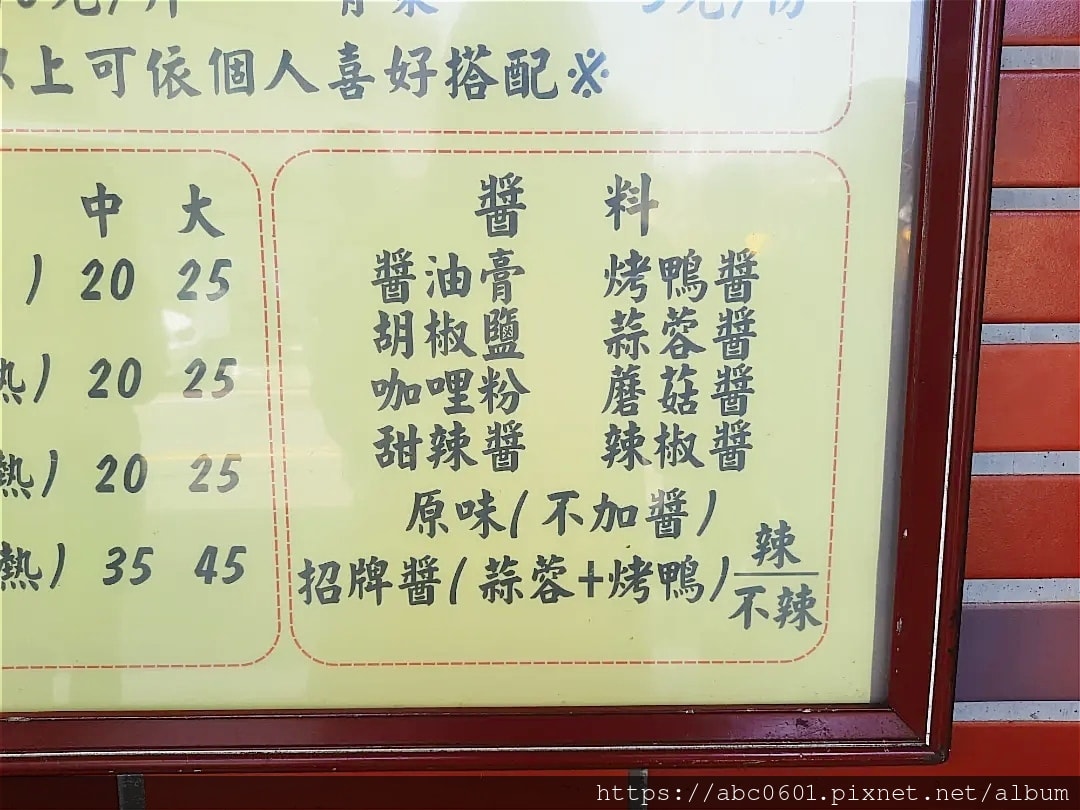 以上可依個人喜好搭配※
中 大
) 20 25
熱) 20 25
熱) 20 25
熱) 35 45
醬 料
醬油膏 烤鴨醬
胡椒鹽 蒜蓉醬
咖哩粉 蘑菇醬
甜辣醬 辣椒醬
原味(不加醬)
招牌醬(蒜蓉+烤鴨)辣
不辣
https://abc0601.pixnet.net/album